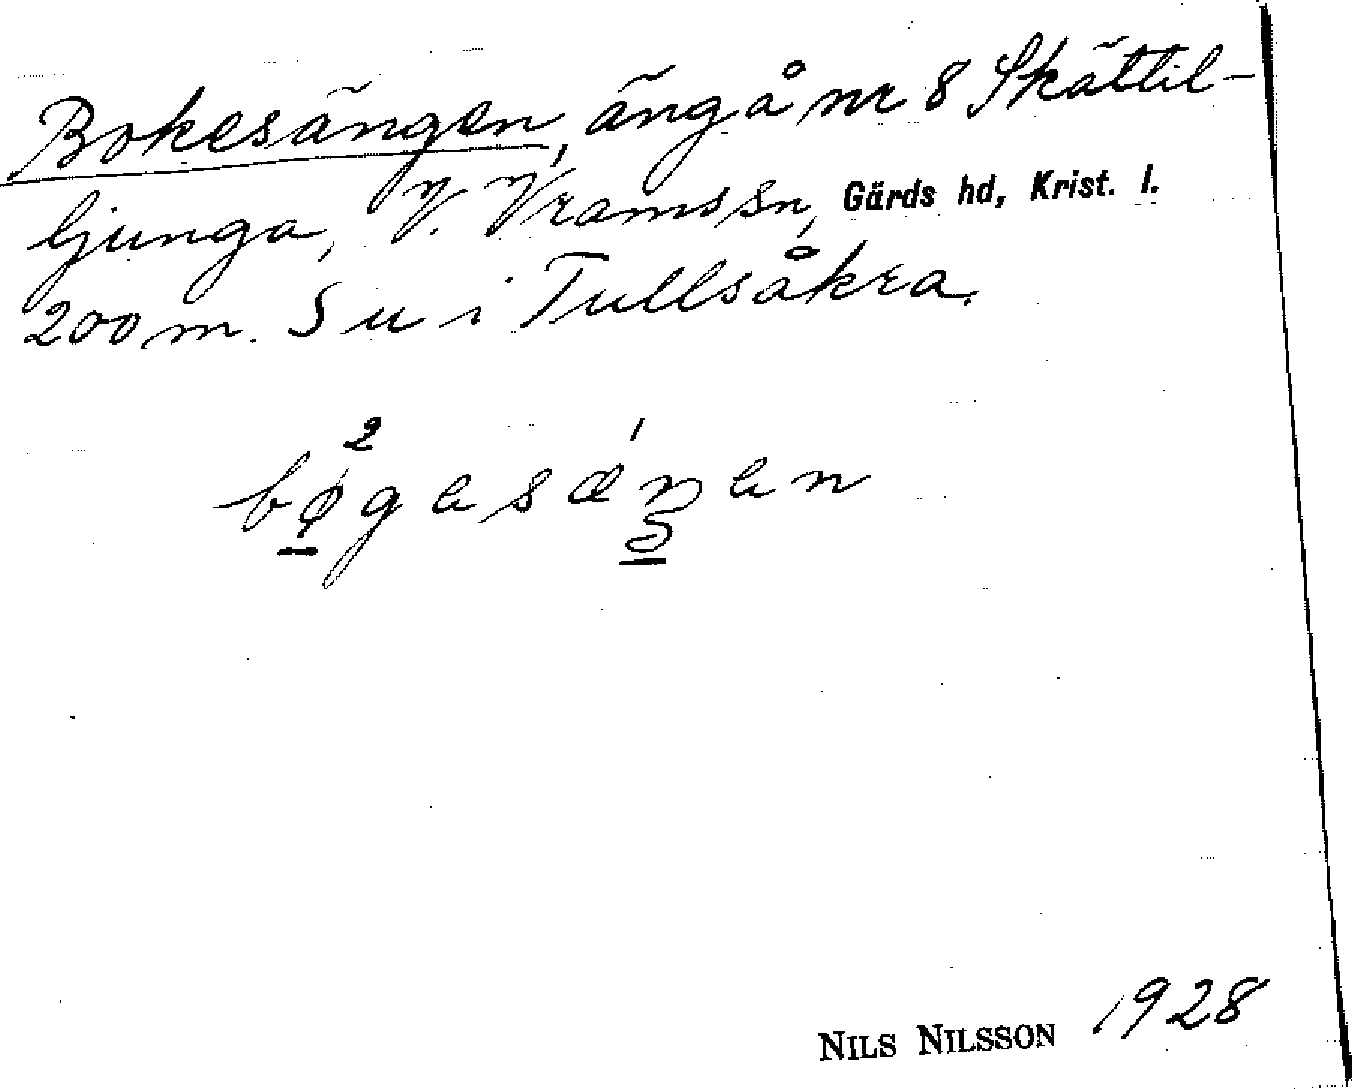 Bokesängen, äng å nr 8 Skättil-
ljunga, V. Vrams sn, Gärds hd, Krist. l.
200 m. S u i Tullsåkra.
NILS NILSSON 1928